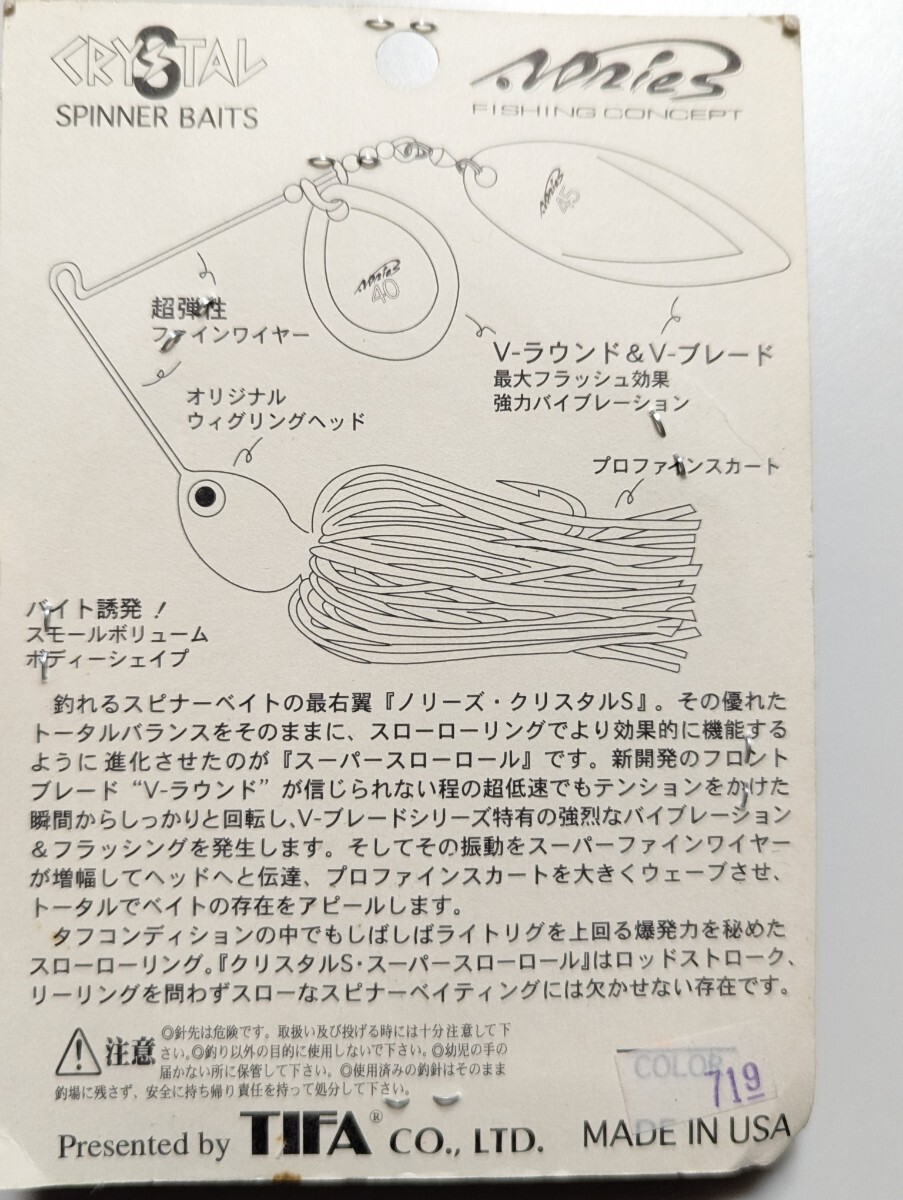 CRYSTAL S
SPINNER BAITS
Nories
FISHING CONCEPT
Nories 45
Nories 40
超弾性
ファインワイヤー
V-ラウンド&V-ブレード
最大フラッシュ効果
強力バイブレーション
オリジナル
ウィグリングヘッド
プロファインスカート
バイト誘発!
スモールボリューム
ボディーシェイプ
釣れるスピナーベイトの最右翼『ノリーズ・クリスタルS』。その優れた
トータルバランスをそのままに、スローローリングでより効果的に機能する
ように進化させたのが『スーパースローロール』です。新開発のフロント
ブレード“V-ラウンド”が信じられない程の超低速でもテンションをかけた
瞬間からしっかりと回転し、V-ブレードシリーズ特有の強烈なバイブレーション
&フラッシングを発生します。そしてその振動をスーパーファインワイヤー
が増幅してヘッドへと伝達、プロファインスカートを大きくウェーブさせ、
トータルでベイトの存在をアピールします。
タフコンディションの中でもしばしばライトリグを上回る爆発力を秘めた
スローローリング。『クリスタルS・スーパースローロール』はロッドストローク、
リーリングを問わずスローなスピナーベイティングには欠かせない存在です。
注意 ◎針先は危険です。取扱い及び投げる時には十分注意して下
さい。◎釣り以外の目的に使用しないで下さい。◎幼児の手の
届かない所に保管して下さい。◎使用済みの釣針はそのまま
釣場に残さず、安全に持ち帰り責任を持って処分して下さい。
COLOR
719
Presented by TIFA® CO., LTD. MADE IN USA